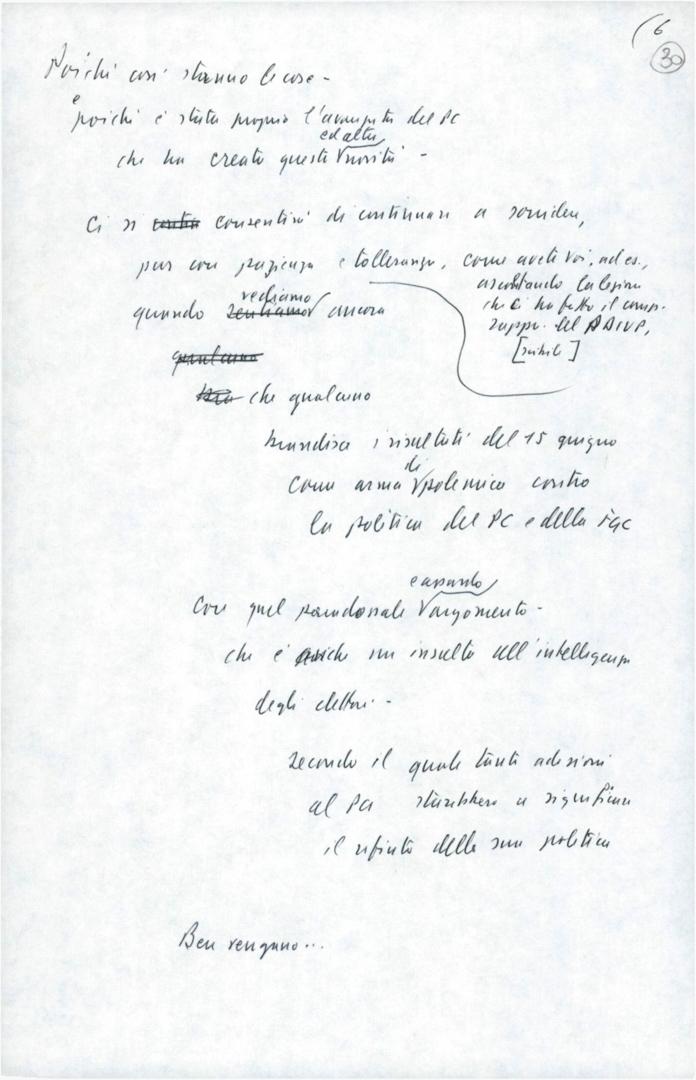 16
30
Poiché così stanno le cose -
e
poiché è stata proprio l'avanzata del PC
ed altre
che ha creato queste novità -
Ci si consentirà di continuare a sorridere,
pur con pazienza e tolleranza, come avete voi, ad es.,
ascoltando la lezione
che ci ha fatto il comp.
rappr. del PDIUP,
vediamo
quando sentiamo ancora
qualcuno
che qualcuno
brandisce i risultati del 15 giugno
di
come arma polemica contro
la politica del PC e della FGC
e assurdo
Con quel paradossale argomento -
che è anche un insulto all'intelligenza
degli elettori -
secondo il quale tante adesioni
al PCI starebbero a significare
il rifiuto della sua politica
Ben vengano...